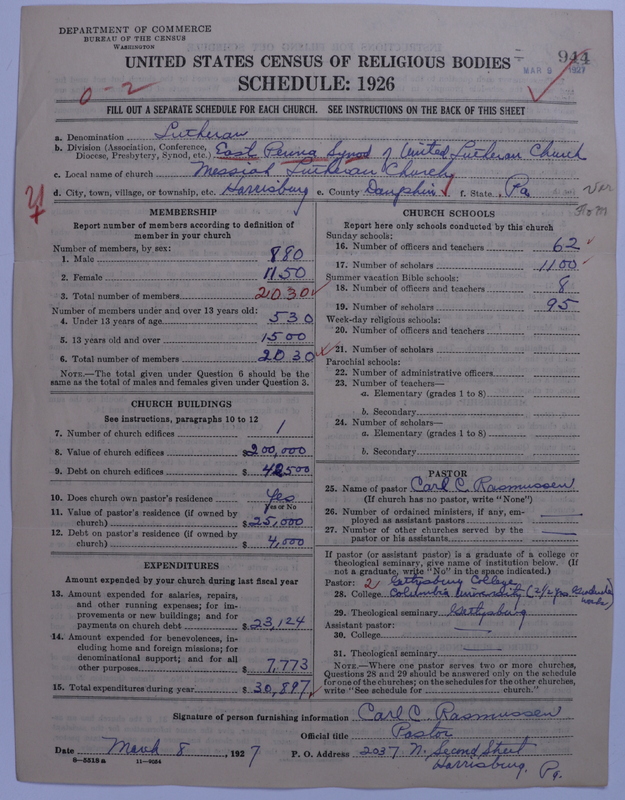 DEPARTMENT OF COMMERCE
BUREAU OF THE CENSUS
WASHINGTON
944
MAR 9 1927
UNITED STATES CENSUS OF RELIGIOUS BODIES
SCHEDULE: 1926
0-2
FILL OUT A SEPARATE SCHEDULE FOR EACH CHURCH. SEE INSTRUCTIONS ON THE BACK OF THIS SHEET
a. Denomination Lutheran
b. Division (Association, Conference, Diocese, Presbytery, Synod, etc.) East Penna Synod of United Lutheran Church
c. Local name of church Messiah Lutheran Church
d. City, town, village, or township, etc. Harrisburg e. County Dauphin f. State Pa
MEMBERSHIP
Report number of members according to definition of
member in your church
Number of members, by sex:
1. Male 880
2. Female 1150
3. Total number of members 2030
Number of members under and over 13 years old:
4. Under 13 years of age 530
5. 13 years old and over 1500
6. Total number of members 2030
NOTE.—The total given under Question 6 should be
same as the total of males and females given under Question 3.
CHURCH BUILDINGS
See instructions, paragraphs 10 to 12
7. Number of church edifices 1
8. Value of church edifices $200,000
9. Debt on church edifices $42500
10. Does church own pastor's residence Yes
Yes or No
11. Value of pastor's residence (if owned by
church) $25,000
12. Debt on pastor's residence (if owned by
church) $4,000
EXPENDITURES
Amount expended by your church during last fiscal year
13. Amount expended for salaries, repairs,
and other running expenses; for im-
provements or new buildings; and for
payments on church debt $23,124
14. Amount expended for benevolences, in-
cluding home and foreign missions; for
denominational support; and for all
other purposes $7,773
15. Total expenditures during year $30,897
CHURCH SCHOOLS
Report here only schools conducted by this church
Sunday schools:
16. Number of officers and teachers 62
17. Number of scholars 1100
Summer vacation Bible schools:
18. Number of officers and teachers 8
19. Number of scholars 95
Week-day religious schools:
20. Number of officers and teachers
21. Number of scholars
Parochial schools:
22. Number of administrative officers
23. Number of teachers—
a. Elementary (grades 1 to 8)
b. Secondary
24. Number of scholars—
a. Elementary (grades 1 to 8)
b. Secondary
PASTOR
25. Name of pastor Carl C. Rasmussen
(If church has no pastor, write "None")
26. Number of ordained ministers, if any, em-
ployed as assistant pastors
27. Number of other churches served by the
pastor or his assistants
If pastor (or assistant pastor) is a graduate of a college or
theological seminary, give name of institution below. (If
not a graduate, write "No" in the space indicated.)
Pastor: 2 Gettysburg College
28. College Columbia University (2 1/2 yrs. Graduate work)
29. Theological seminary Gettysburg
Assistant pastor:
30. College
31. Theological seminary
NOTE.—Where one pastor serves two or more churches,
Questions 28 and 29 should be answered only on the schedule
for one of the churches; on the schedules for the other churches,
write "See schedule for church."
Signature of person furnishing information Carl C. Rasmussen
Official title Pastor
Date March 8, 1927 P. O. Address 2037 N. Second Street
Harrisburg, Pa.
8-5518 a 11-9054